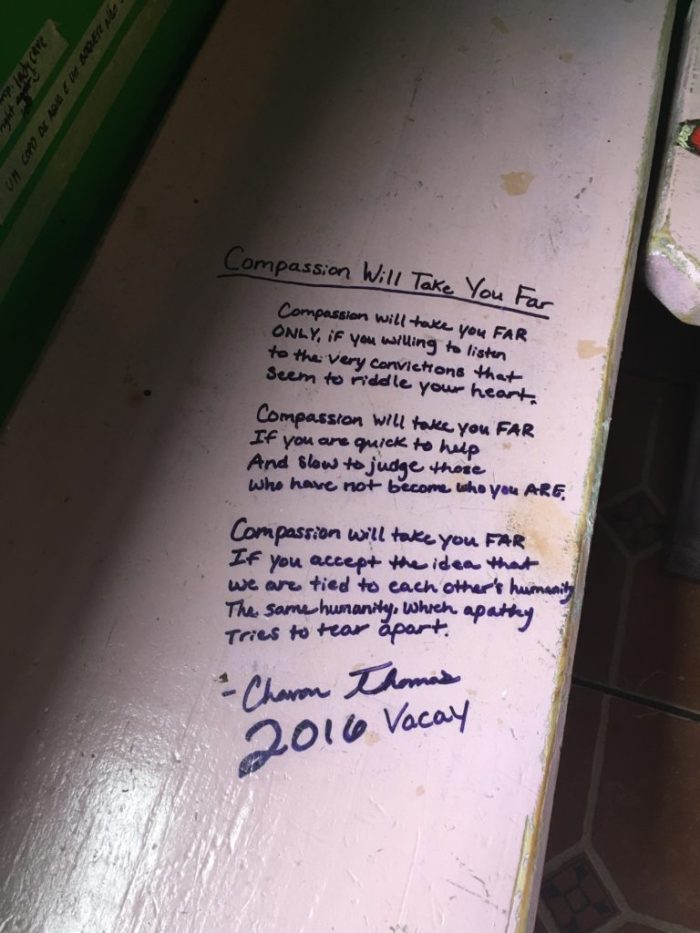 lady CAVE
right
UM COPO DE AGUA E UM BOQUETE NÃO
Compassion Will Take You Far
Compassion will take you FAR
ONLY, if you willing to listen
to the very convictions that
Seem to riddle your heart.
Compassion will take you FAR
If you are quick to help
And slow to judge those
who have not become who you ARE.
Compassion will take you FAR
If you accept the idea that
we are tied to each other's humanity
The same humanity, which apathy
Tries to tear apart.
- Charon Thomas
2016 Vacay